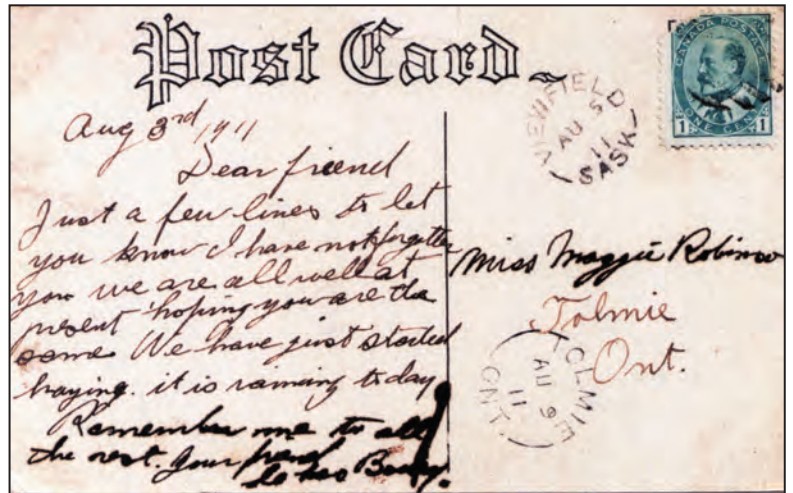 Post Card
Aug 3rd, 1911
Dear friend
Just a few lines to let
you know I have not forgotten
you we are all well at
present hoping you are the
same We have just started
haying. it is raining today
Remember me to all
the rest. your friend
VIEWFIELD
AU 5
11
SASK
CANADA POSTAGE
1 ONE CENT 1
Miss Maggie Robinson
Tolmie
Ont.
TOLMIE
AU 9
11
ONT.